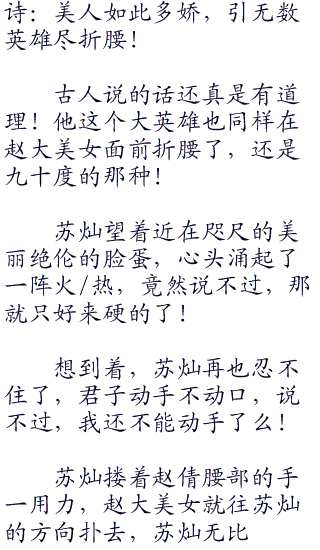 诗：美人如此多娇，引无数
英雄尽折腰！
古人说的话还真是有道
理！他这个大英雄也同样在
赵大美女面前折腰了，还是
九十度的那种！
苏灿望着近在咫尺的美
丽绝伦的脸蛋，心头涌起了
一阵火/热，竟然说不过，那
就只好来硬的了！
想到着，苏灿再也忍不
住了，君子动手不动口，说
不过，我还不能动手了么！
苏灿搂着赵倩腰部的手
一用力，赵大美女就往苏灿
的方向扑去，苏灿无比